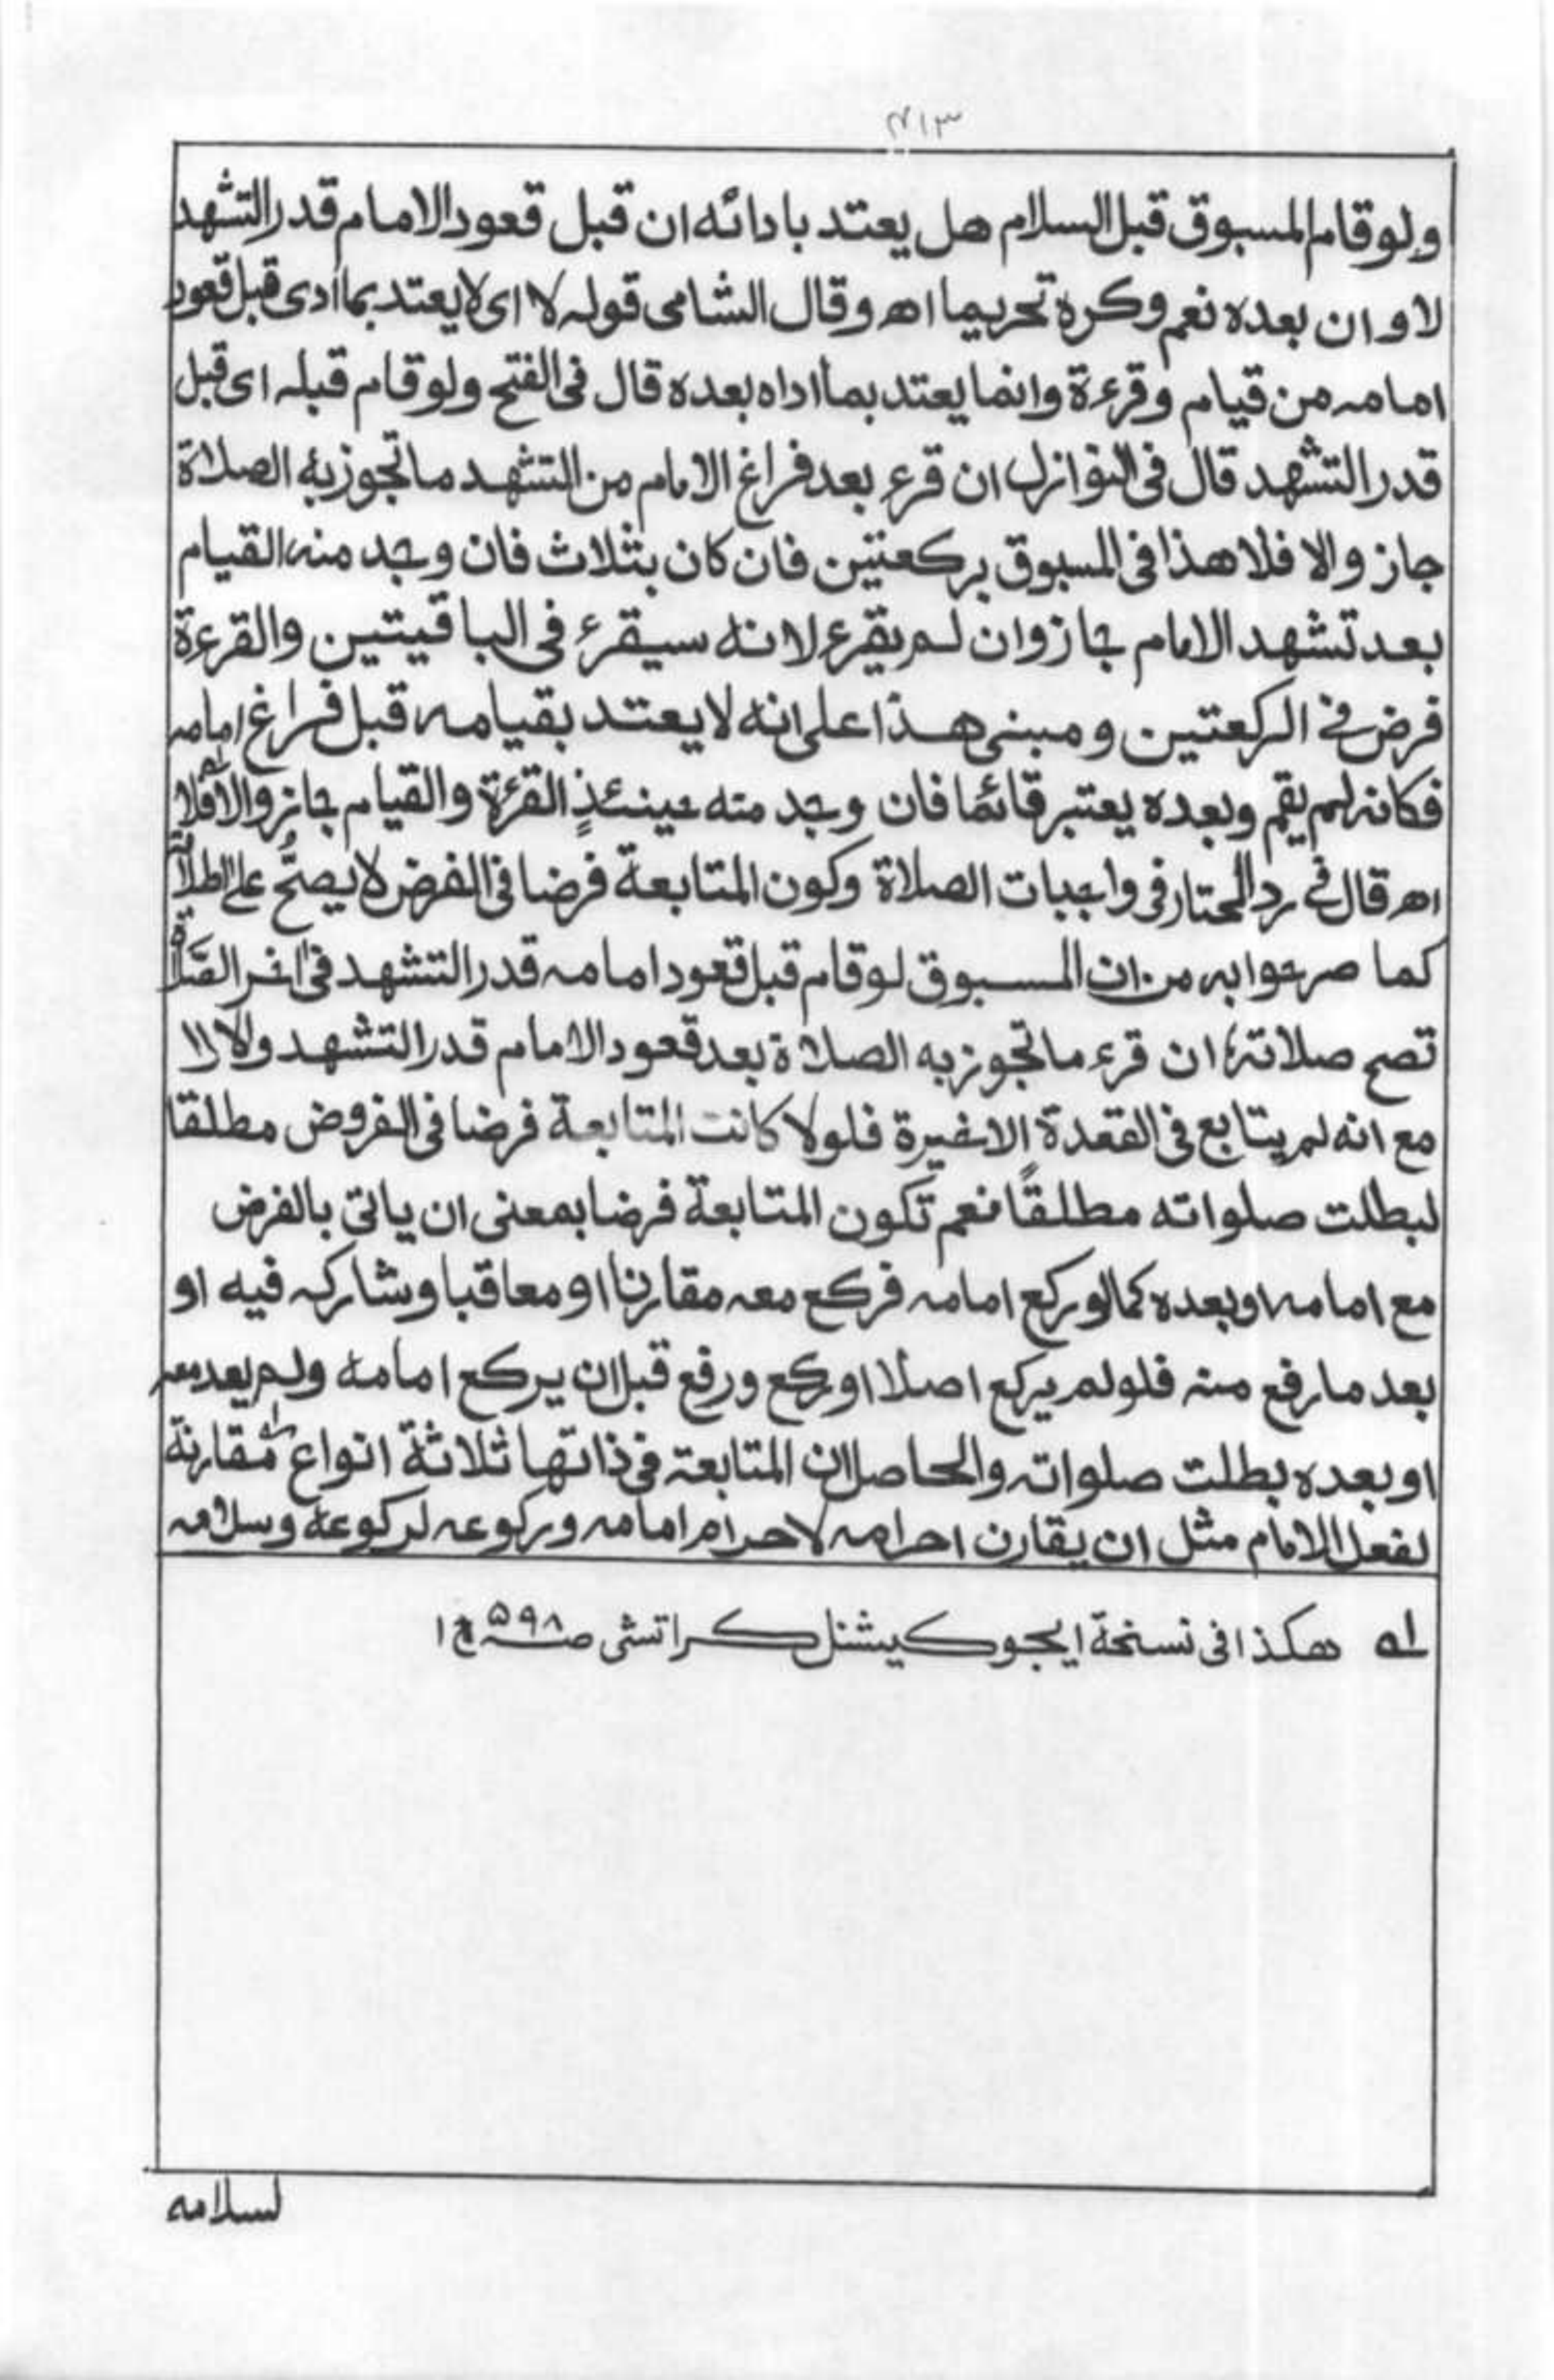 ٣١٣
ولو قام المسبوق قبل السلام هل يعتد بادائه ان قبل قعود الامام قدر التشهد
لا و ان بعده نعم وكره تحريما اھ وقال الشامى قوله لا اى لا يعتد بما أدى قبل قعود
امامه من قيام وقرءة وانما يعتد بما اداه بعده قال فى الفتح ولو قام قبله اى قبل
قدر التشهد قال فى النوازل ان قرء بعد فراغ الامام من التشهد ما تجوز به الصلاة
جاز والا فلا هذا فى المسبوق بركعتين فان كان بثلاث فان وجد منه القيام
بعد تشهد الامام جاز وان لم يقرء لانه سيقرء فى الباقيتين والقرءة
فرض فى الركعتين ومبنى هذا على انه لا يعتد بقيامه قبل فراغ امامه
فكانه لم يقم وبعده يعتبر قائما فان وجد منه حينئذٍ القرءة والقيام جاز والا فلا
اھ قال فى رد المحتار فى واجبات الصلاة وكون المتابعة فرضا فى الفرض لا يصحُّ على اطلاقه
كما صرحوا به من ان المسبوق لو قام قبل قعود امامه قدر التشهد فى اخر الصَّلاة
تصح صلاته ان قرء ما تجوز به الصلاة بعد قعود الامام قدر التشهد والا لا
مع انه لم يتابع فى القعدة الاخيرة فلو لا كانت المتابعة فرضا فى الفروض مطلقا
لبطلت صلواته مطلقًا نعم تكون المتابعة فرضا بمعنى ان ياتى بالفرض
مع امامه او بعده كما لو ركع امامه فركع معه مقارنا او معاقبا وشاركه فيه او
بعد ما رفع منه فلو لم يركع اصلا او ركع ورفع قبل ان يركع امامه ولم يعد معه
او بعده بطلت صلواته والحاصل ان المتابعة فى ذاتها ثلاثة انواع مقارنة
لفعل الامام مثل ان يقارن احرامه لاحرام امامه وركوعه لركوعه وسلامه
له هكذا فى نسخة ايجوكيشنل كراتشى صـ ٥٩٨ ج ١
لسلامه